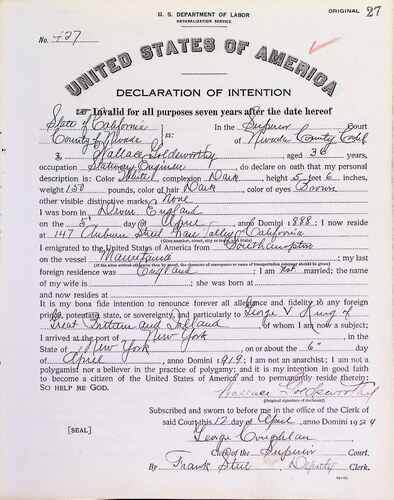 U. S. DEPARTMENT OF LABOR
NATURALIZATION SERVICE
ORIGINAL 27
No. 427
UNITED STATES OF AMERICA
DECLARATION OF INTENTION
Invalid for all purposes seven years after the date hereof
State of California
County of Nevada ss:
In the Superior Court
of Nevada County Calif
I, Wallace Goldsworthy, aged 36 years,
occupation Stationary Engineer, do declare on oath that my personal
description is: Color White, complexion Dark, height 5 feet 6 inches,
weight 150 pounds, color of hair Dark, color of eyes Brown
other visible distinctive marks None
I was born in Devon England
on the 5 day of April, anno Domini 1888; I now reside
at 147 Auburn Street Grass Valley California
(Give number, street, city or town, and State.)
I emigrated to the United States of America from Southampton
on the vessel Mauretania; my last
(If the alien arrived otherwise than by vessel, the character of conveyance or name of transportation company should be given.)
foreign residence was England; I am not married; the name
of my wife is; she was born at
and now resides at
It is my bona fide intention to renounce forever all allegiance and fidelity to any foreign
prince, potentate, state, or sovereignty, and particularly to George V King of
Great Brittain and Ireland of whom I am now a subject;
I arrived at the port of New York, in the
State of New York, on or about the 6" day
of April, anno Domini 1919; I am not an anarchist; I am not a
polygamist nor a believer in the practice of polygamy; and it is my intention in good faith
to become a citizen of the United States of America and to permanently reside therein:
SO HELP ME GOD.
Wallace Goldsworthy
(Original signature of declarant)
Subscribed and sworn to before me in the office of the Clerk of
said Court this 12 day of April, anno Domini 1924
[SEAL]
George Coughlan
Clerk of the Superior Court.
By Frank Steel, Deputy Clerk.